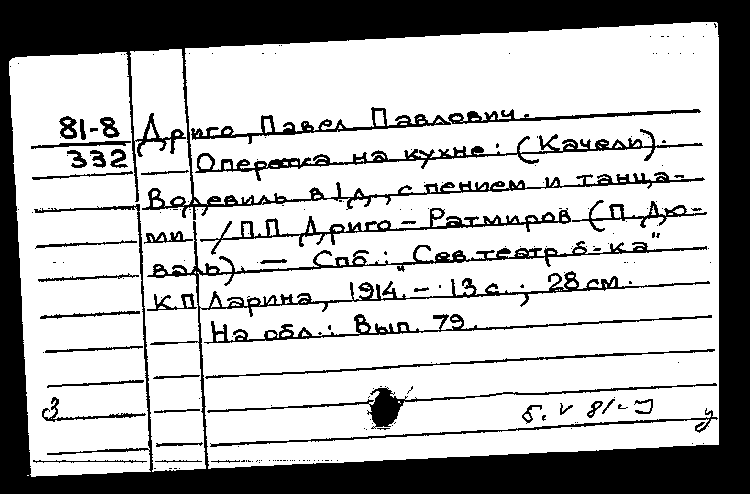 81-8
332
Дриго, Павел Павлович.
Оперетка на кухне: (Качели).
Водевиль в 1 д., с пением и танца-
ми / П.П. Дриго-Ратмиров (П. Дю-
валь). — Спб.: "Сев. театр. б-ка"
К.П. Ларина, 1914. - 13 с.; 28 см.
На обл.: Вып. 79.
З